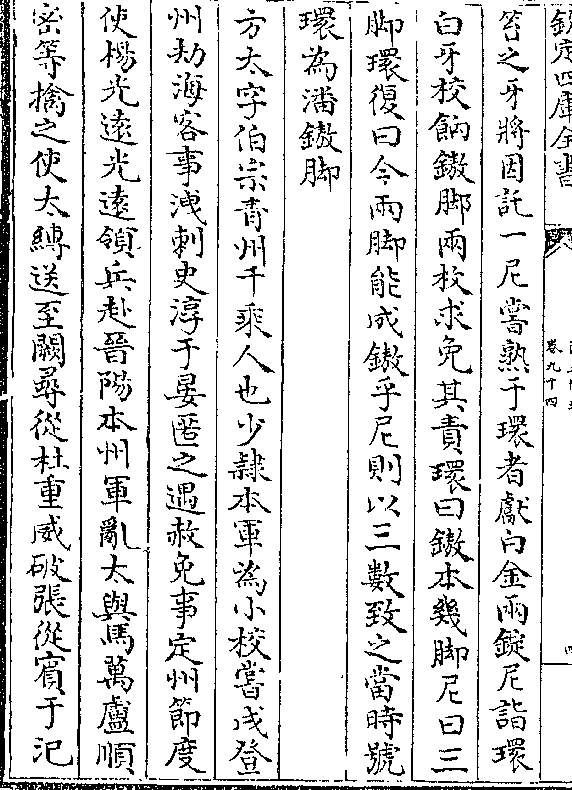 欽定四庫全書
卷九十四
笞之牙將因託一尼嘗熟于環者獻白金兩錠尼詣環
白牙校餉鏊脚兩枚求免其責環曰鏊本幾脚尼曰三
脚環復曰今兩脚能成鏊乎尼則以三數致之當時號
環為潘鏊脚
方太字伯宗青州千乘人也少隸本軍為小校嘗戍登
州劫海客事洩刺史淳于晏匿之遇赦免事定州節度
使楊光遠光遠領兵赴晉陽本州軍亂太與馬萬盧順
密等擒之使太縛送至闕尋從杜重威破張從賓于汜